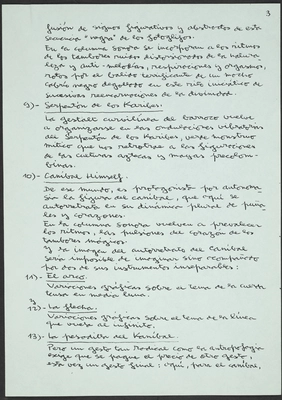 3
fusión de signos figurativos y abstractos de esta
secuencia "negra" de los fotoglifos.
En la columna sonora se incorporan a los ritmos
de los tambores ruidos distorsionados de la natura
leza y anti-melodías, respiraciones y orgasmos,
rotos por el balido terrorificante de un macho
cabrío negro degollado en este rito iniciático de
sucesivas reencarnaciones de la divinidad.
9)- Serpentón de los Karibes.
La gestalt curvilínea del barroco vuelve
a organizarse en las ondulaciones vibratorias
del Serpentón de los Karibes, verde monstruo
mítico que nos retrotrae a las figuraciones
de las culturas aztecas y mayas precolom-
binas.
10)- Canibal Himself.
De ese mundo, es protagonista por autonoma
sia la figura del canibal, que aquí se
autorretrata en su dinámica plural de puña
les y corazones.
En la columna sonora vuelven a prevalecer
los ritmos, las pulsiones del corazón de los
tambores mágicos.
Y la imagen del autorretrato del Canibal
sería imposible de imaginar sino acompañado
por dos de sus instrumentos inseparables:
11)- El arco.
Variaciones gráficas sobre el tema de la cuerda
tensa en medio luna.
y
12)- La flecha.
Variaciones gráficas sobre el tema de la línea
que vuela al infinito.
13)- La pesadilla del Kanibal.
Pero un gesto tan radical como la antropofagia
exige que se pague el precio de otro gesto,
esta vez un gesto final: aquí, para el canibal,